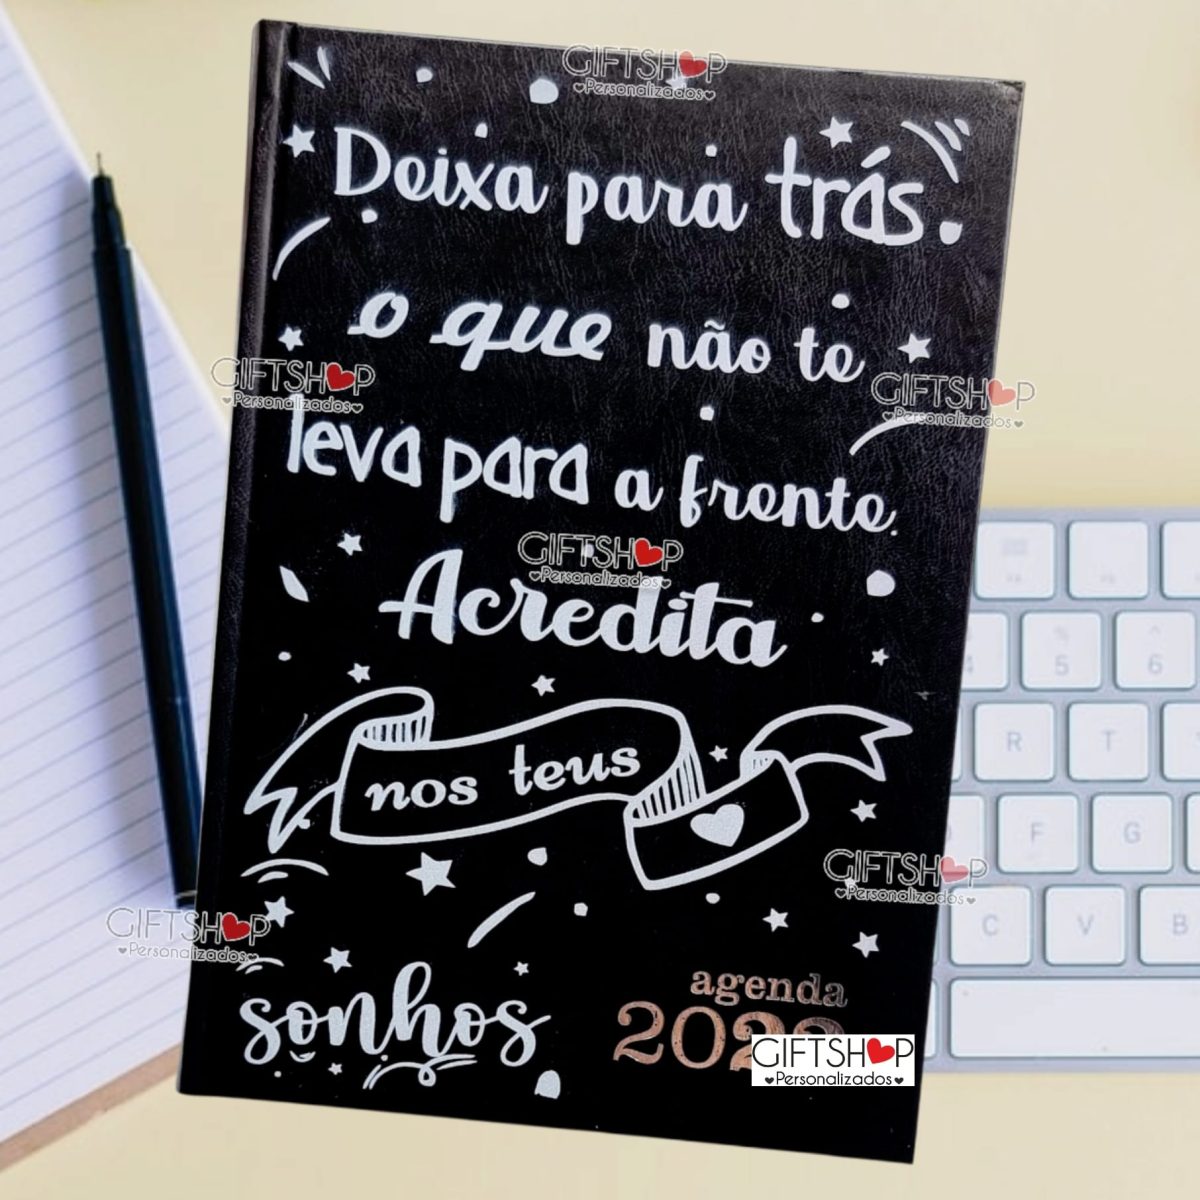 GIFTSHOP
Personalizados
Deixa para trás
o que não te
GIFTSHOP
Personalizados
GIFTSHOP
Personalizados
leva para a frente
GIFTSHOP
Personalizados
Acredita
nos teus
GIFTSHOP
Personalizados
GIFTSHOP
Personalizados
sonhos
agenda
GIFTSHOP
Personalizados
5
6
R
T
F
G
C
V
B